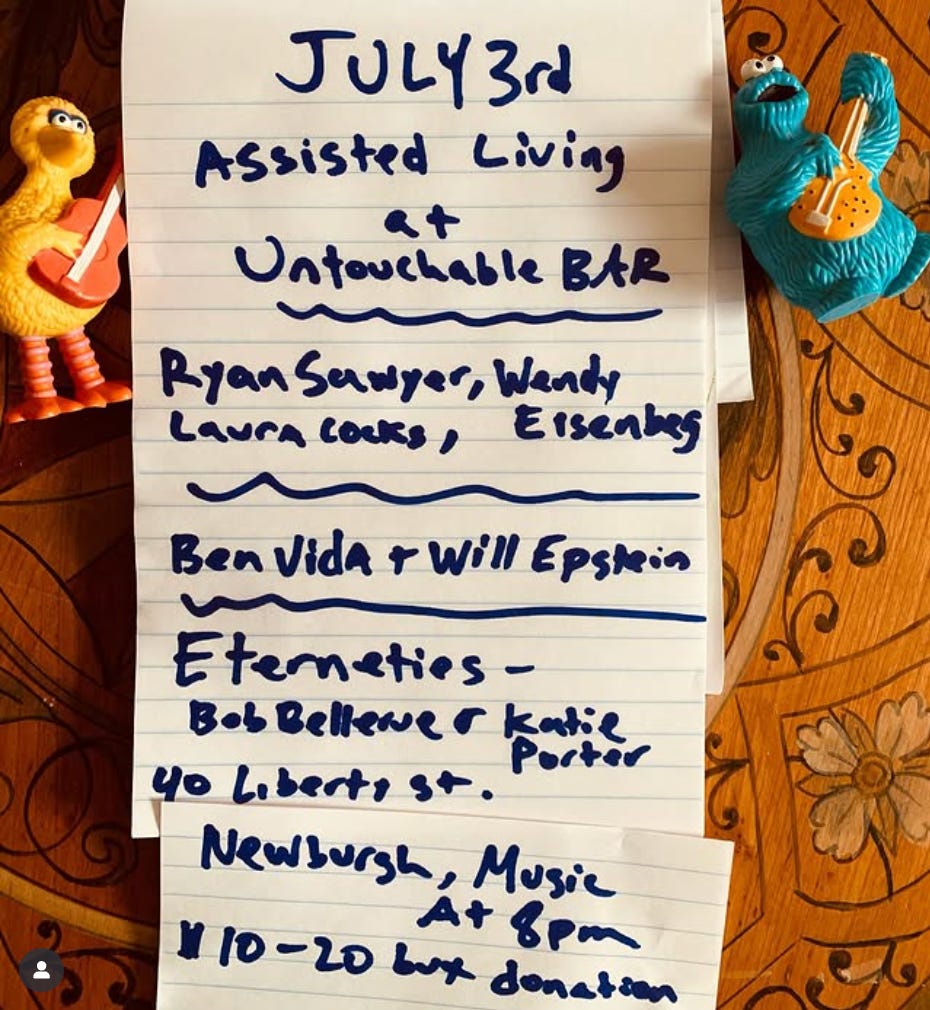 JULY 3rd
Assisted Living
at
Untouchable BAR
Ryan Sawyer, Wendy
Laura Cocks, Eisenbeg
Ben Vida + Will Epstein
Eterneties -
Bob Bellerue & Katie
Porter
40 Liberty st.
Newburgh, Music
At 8pm
$10-20 bux donation